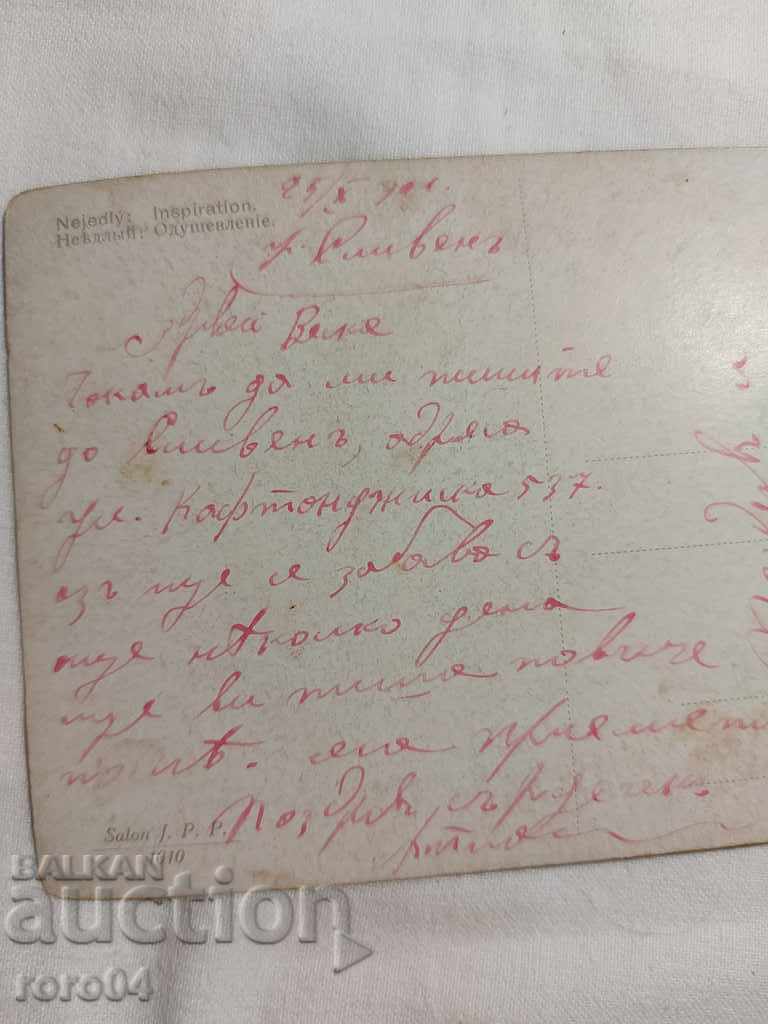 Nejedlý: Inspiration.
Неѣдлый: Одушевленіе.
25/X
Сливенъ
Здравей
Чакамъ да ми пишите
до Сливенъ, адреса
ул. Кафтонджийска 537.
азъ ще се забава съ
още нѣколко дена
ще ви пиша повиче
послѣ.
Поздрав сърдечен
Salon J. P. P.
1910
BALKAN
auction
roro04